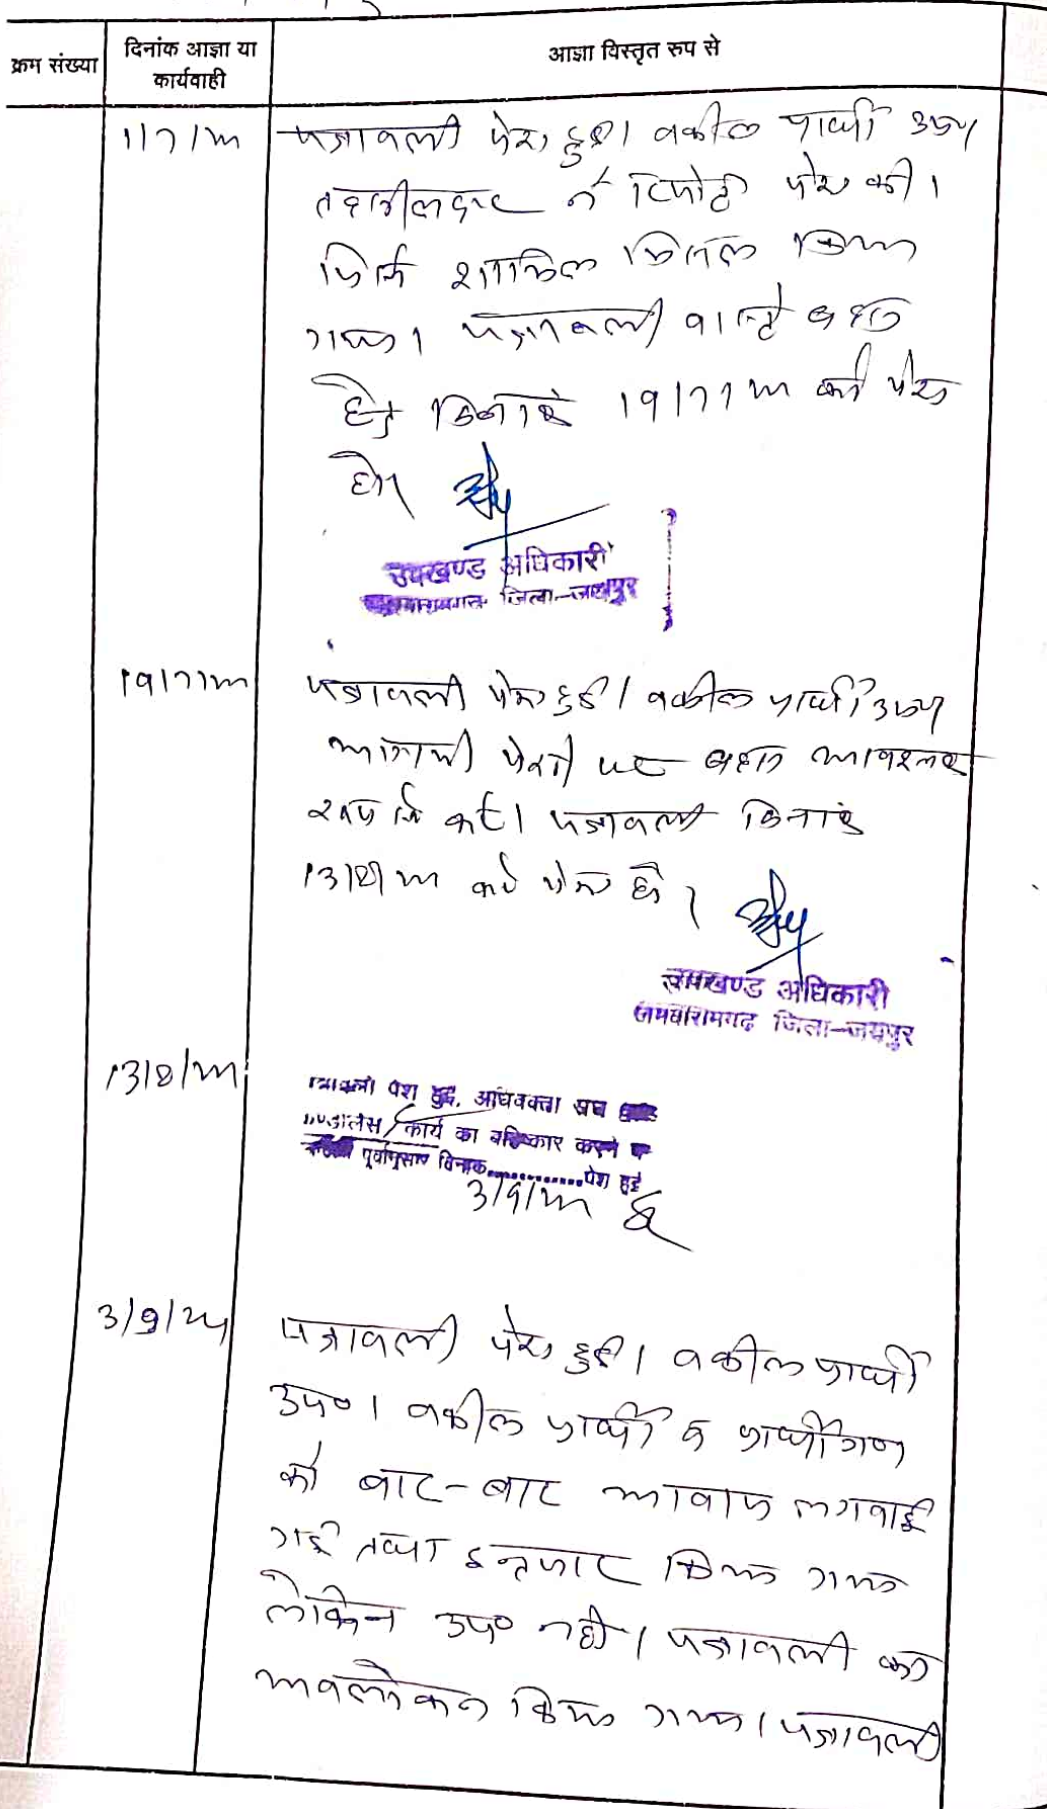 क्रम संख्या
दिनांक आज्ञा या
कार्यवाही
आज्ञा विस्तृत रुप से
पत्रावली पेश हुई। वकील प्रार्थी उप०
तहसीलदार ने रिपोर्ट पेश की।
शामिल मिसल किया
गया। पत्रावली वास्ते बहस
हेतु दिनांक को पेश
हो।
उपखण्ड अधिकारी
जिला-जयपुर
पत्रावली पेश हुई। वकील प्रार्थी उप०
आगामी पेशी पर बहस आवश्यक
रूप से करें। पत्रावली दिनांक
को पेश हो।
उपखण्ड अधिकारी
जमवारामगढ जिला-जयपुर
पत्रावली पेश हुई, अधिवक्ता संघ
कार्य का बहिष्कार करने
पूर्वानुसार दिनांक.............पेश हुई
3/9/24
पत्रावली पेश हुई। वकील प्रार्थी
उप०। वकील प्रार्थी व प्रार्थीगण
को बार-बार आवाज लगवाई
गई तथा इन्तजार किया गया
लेकिन उप० नही। पत्रावली का
अवलोकन किया गया। पत्रावली